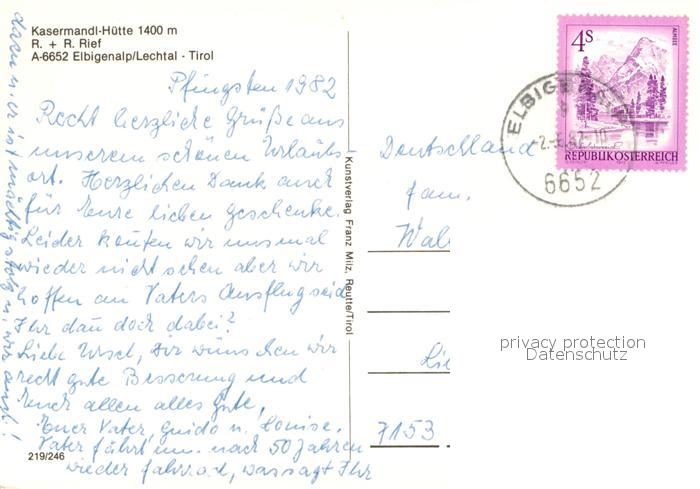 Kasermandl-Hütte 1400 m
R. + R. Rief
A-6652 Elbigenalp/Lechtal - Tirol
Pfingsten 1982
Recht herzliche Grüße aus
unserem schönen Urlaubs-
ort. Herzlichen Dank auch
für Eure lieben Geschenke.
Leider konnten wir uns mal
wieder nicht sehen aber wir
hoffen an Vaters Ausflug seid
Ihr dan doch dabei?
Liebe Ursel, Dir wünschen wir
recht gute Besserung und
Euch allen alles Gute,
Euer Vater, Guido u. Louise.
Vater fährt nach 50 Jahren
wieder fahrrad, was sagt Ihr
dazu u. er ist mächtig stolz u. wir auch!
219/246
Kunstverlag Franz Milz, Reutte/Tirol
Deutschland
Fam.
Wal
7153
4S
ALMSEE
REPUBLIK ÖSTERREICH
6652
privacy protection
Datenschutz